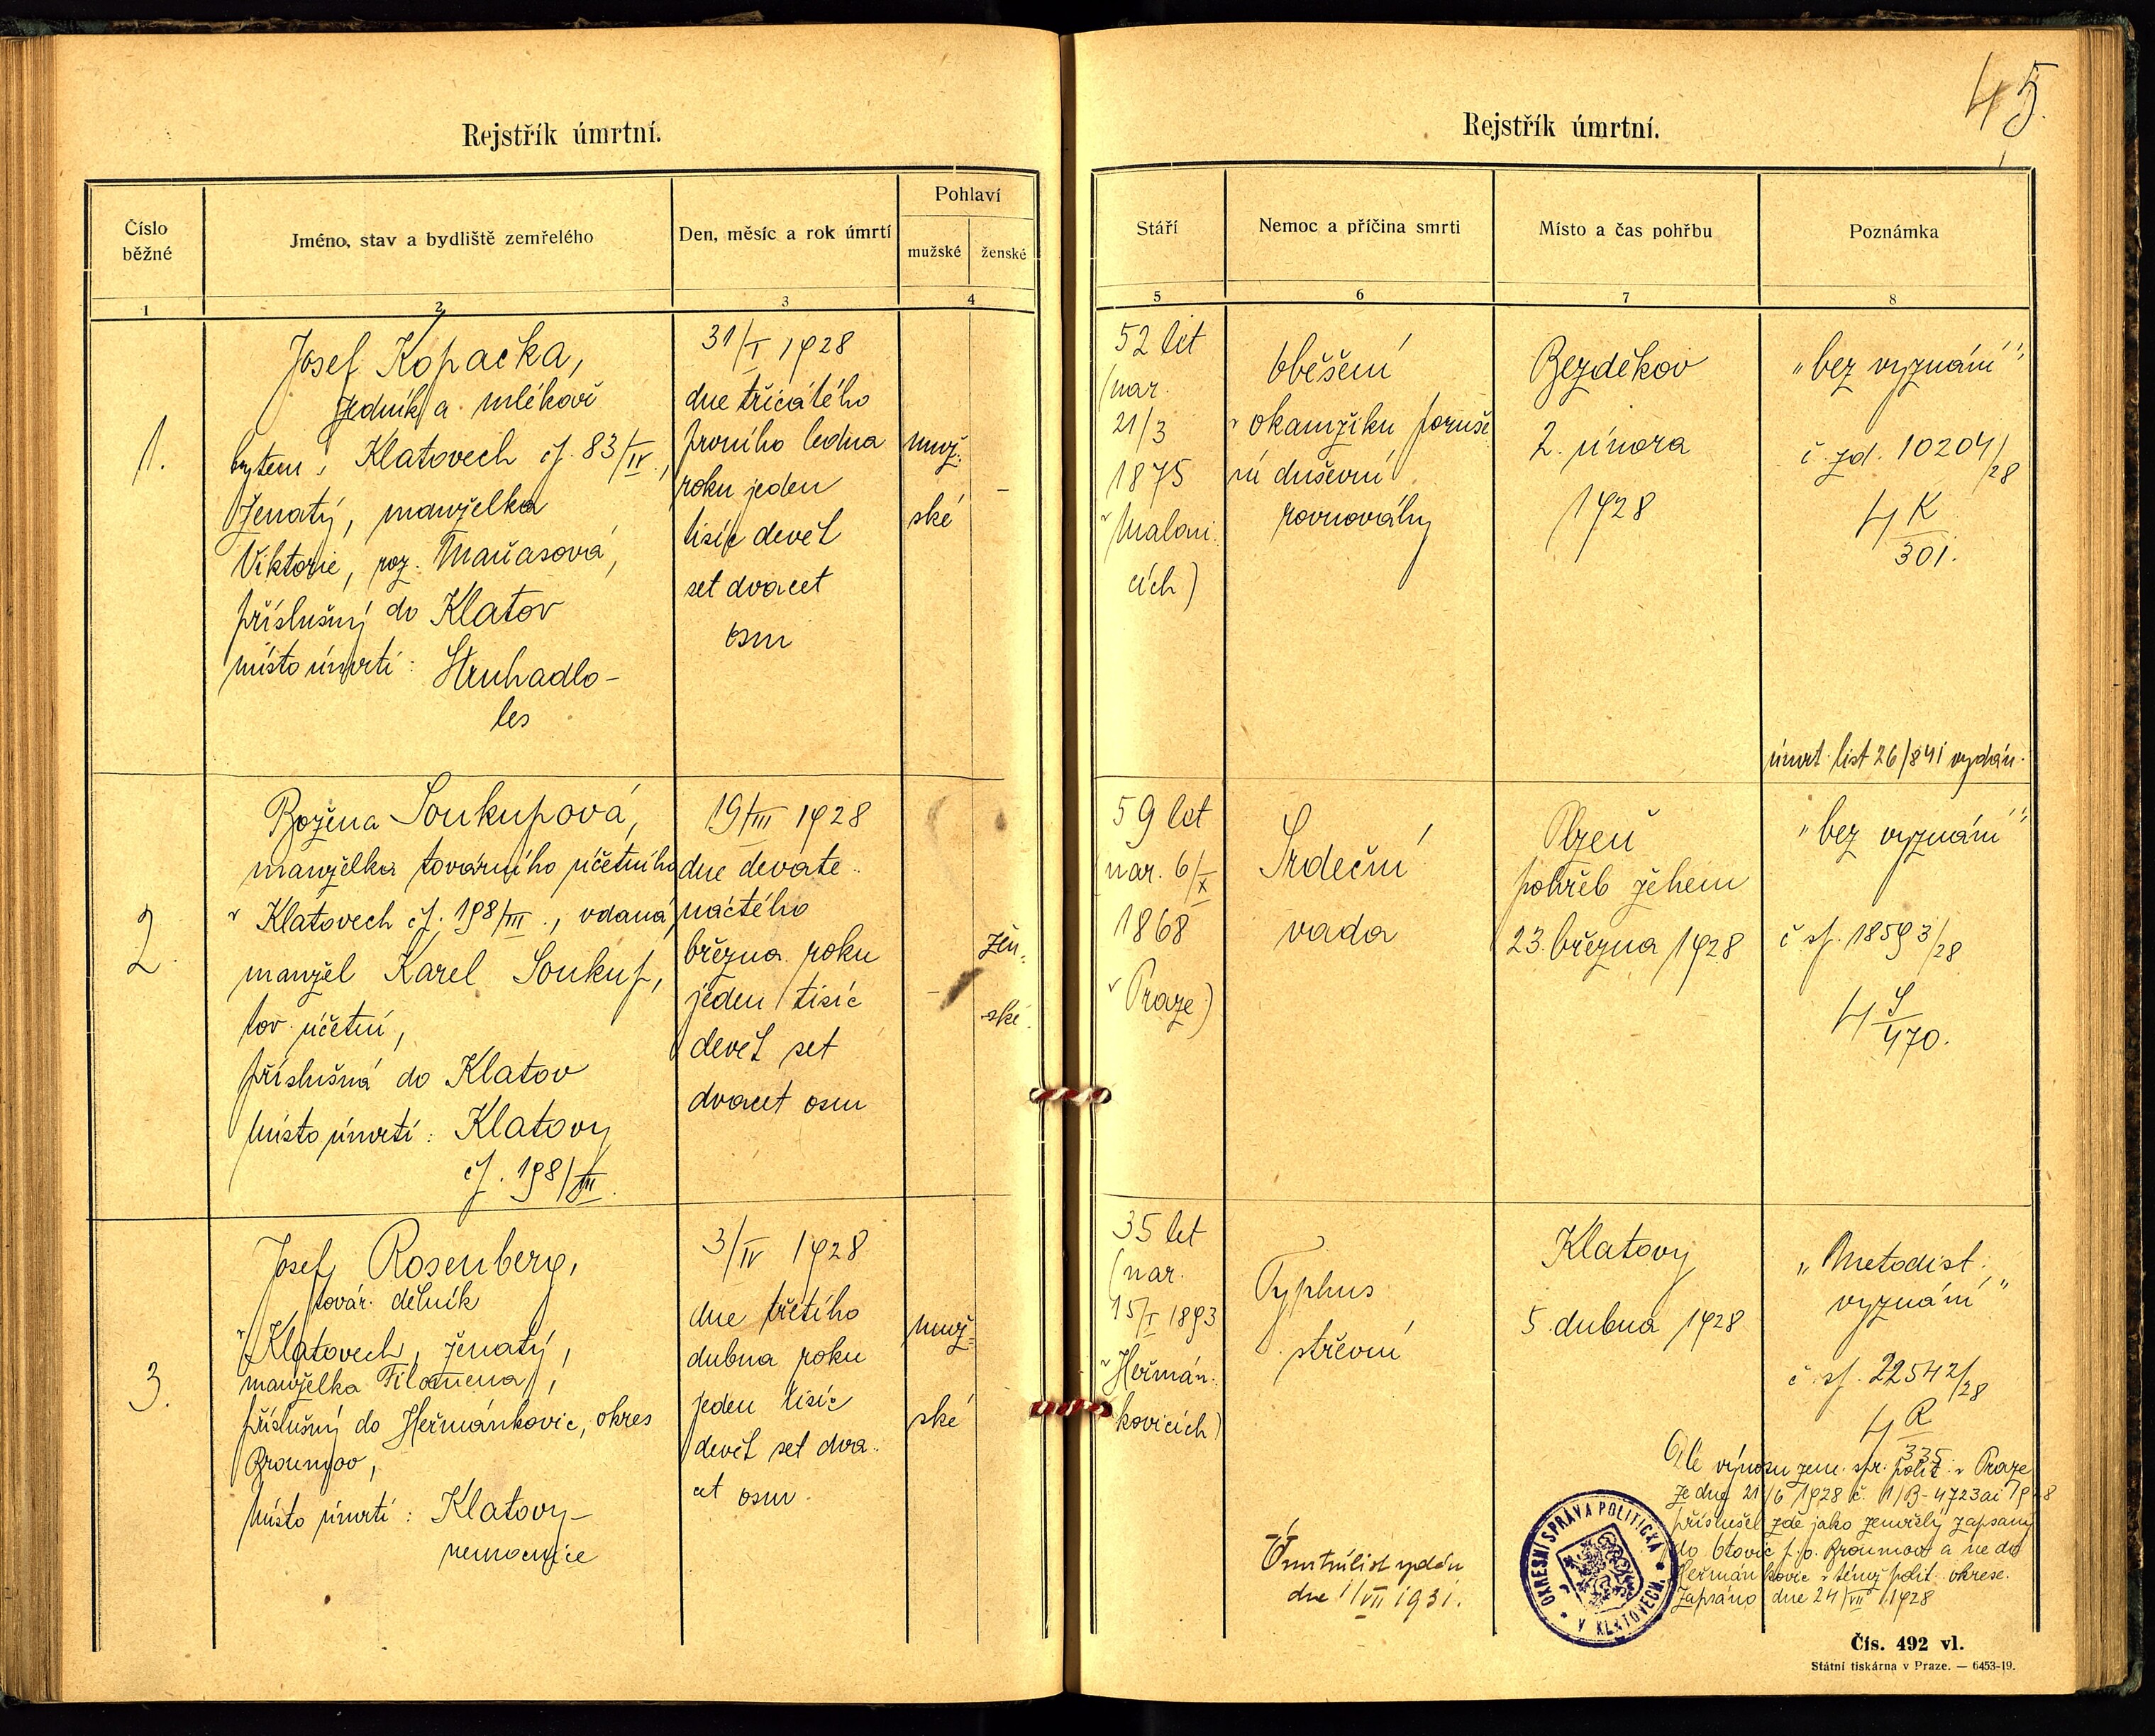 45.
Rejstřík úmrtní.
Číslo běžné
Jméno, stav a bydliště zemřelého
Den, měsíc a rok úmrtí
Pohlaví
mužské
ženské
1
2
3
4
1.
Josef Kopačka,
bytem v Klatovech čp. 83/IV.,
ženatý, manželka
Viktorie, roz. Maňasová,
příslušný do Klatov
místo úmrtí: Struhadlo-
les
31/I 1928
dne třicátého
prvního ledna
roku jeden
tisíc devět
set dvacet
osm
muž-
ské
-
2.
Božena Soukupová,
manželka továrního účetního
v Klatovech čp. 198/III., vdaná,
manžel Karel Soukup,
tov. účetní,
příslušná do Klatov
Místo úmrtí: Klatovy
čp. 198/III.
19/III 1928
dne devate-
náctého
března roku
jeden tisíc
devět set
dvacet osm
-
žen-
ské.
3.
Josef Rosenberg,
továr. dělník
v Klatovech, ženatý,
manželka Filomena,
příslušný do Heřmánkovic, okres
Broumov,
Místo úmrtí: Klatovy-
nemocnice
3/IV 1928
dne třetího
dubna roku
jeden tisíc
devět set dva-
cet osm.
muž-
ské
Rejstřík úmrtní.
Stáří
Nemoc a příčina smrti
Místo a čas pohřbu
Poznámka
5
6
7
8
52 let
(nar.
21/3
1875
v Maloni-
cích)
oběšení
v okamžiku poruše
ní duševní
rovnováhy
Bezděkov
2. února
1928
"bez vyznání"
10204/28
4 K
301.
úmrt. list 26/841 vydán.
59 let
nar. 6/X
1868
v Praze)
Srdeční
vada
Plzeň
pohřeb žehem
23. března 1928
"bez vyznání"
č. sp. 18593/28
4 S
470.
35 let
(nar.
15/I 1893
v Heřmán-
kovicích)
Typhus
střevní
Klatovy
5. dubna 1928
"Metodist.
vyznání"
č. sp. 22542/28
4 R
335
Dle výnosu zem. spr. polit. v Praze
ze dne 21/6 1928 č. 1/B-4723 ai 1928
příslušel zde jako zemřelý zapsaný
do Otovic p. o. Broumov a ne do
Heřmánkovic v témž polit. okrese.
Zapsáno dne 24/VII 1928
Úmrtní list vydán
dne 1/VII 1931.
OKRESNÍ SPRÁVA POLITICKÁ
V KLATOVECH.
Čís. 492 vl.
Státní tiskárna v Praze. — 6453-19.